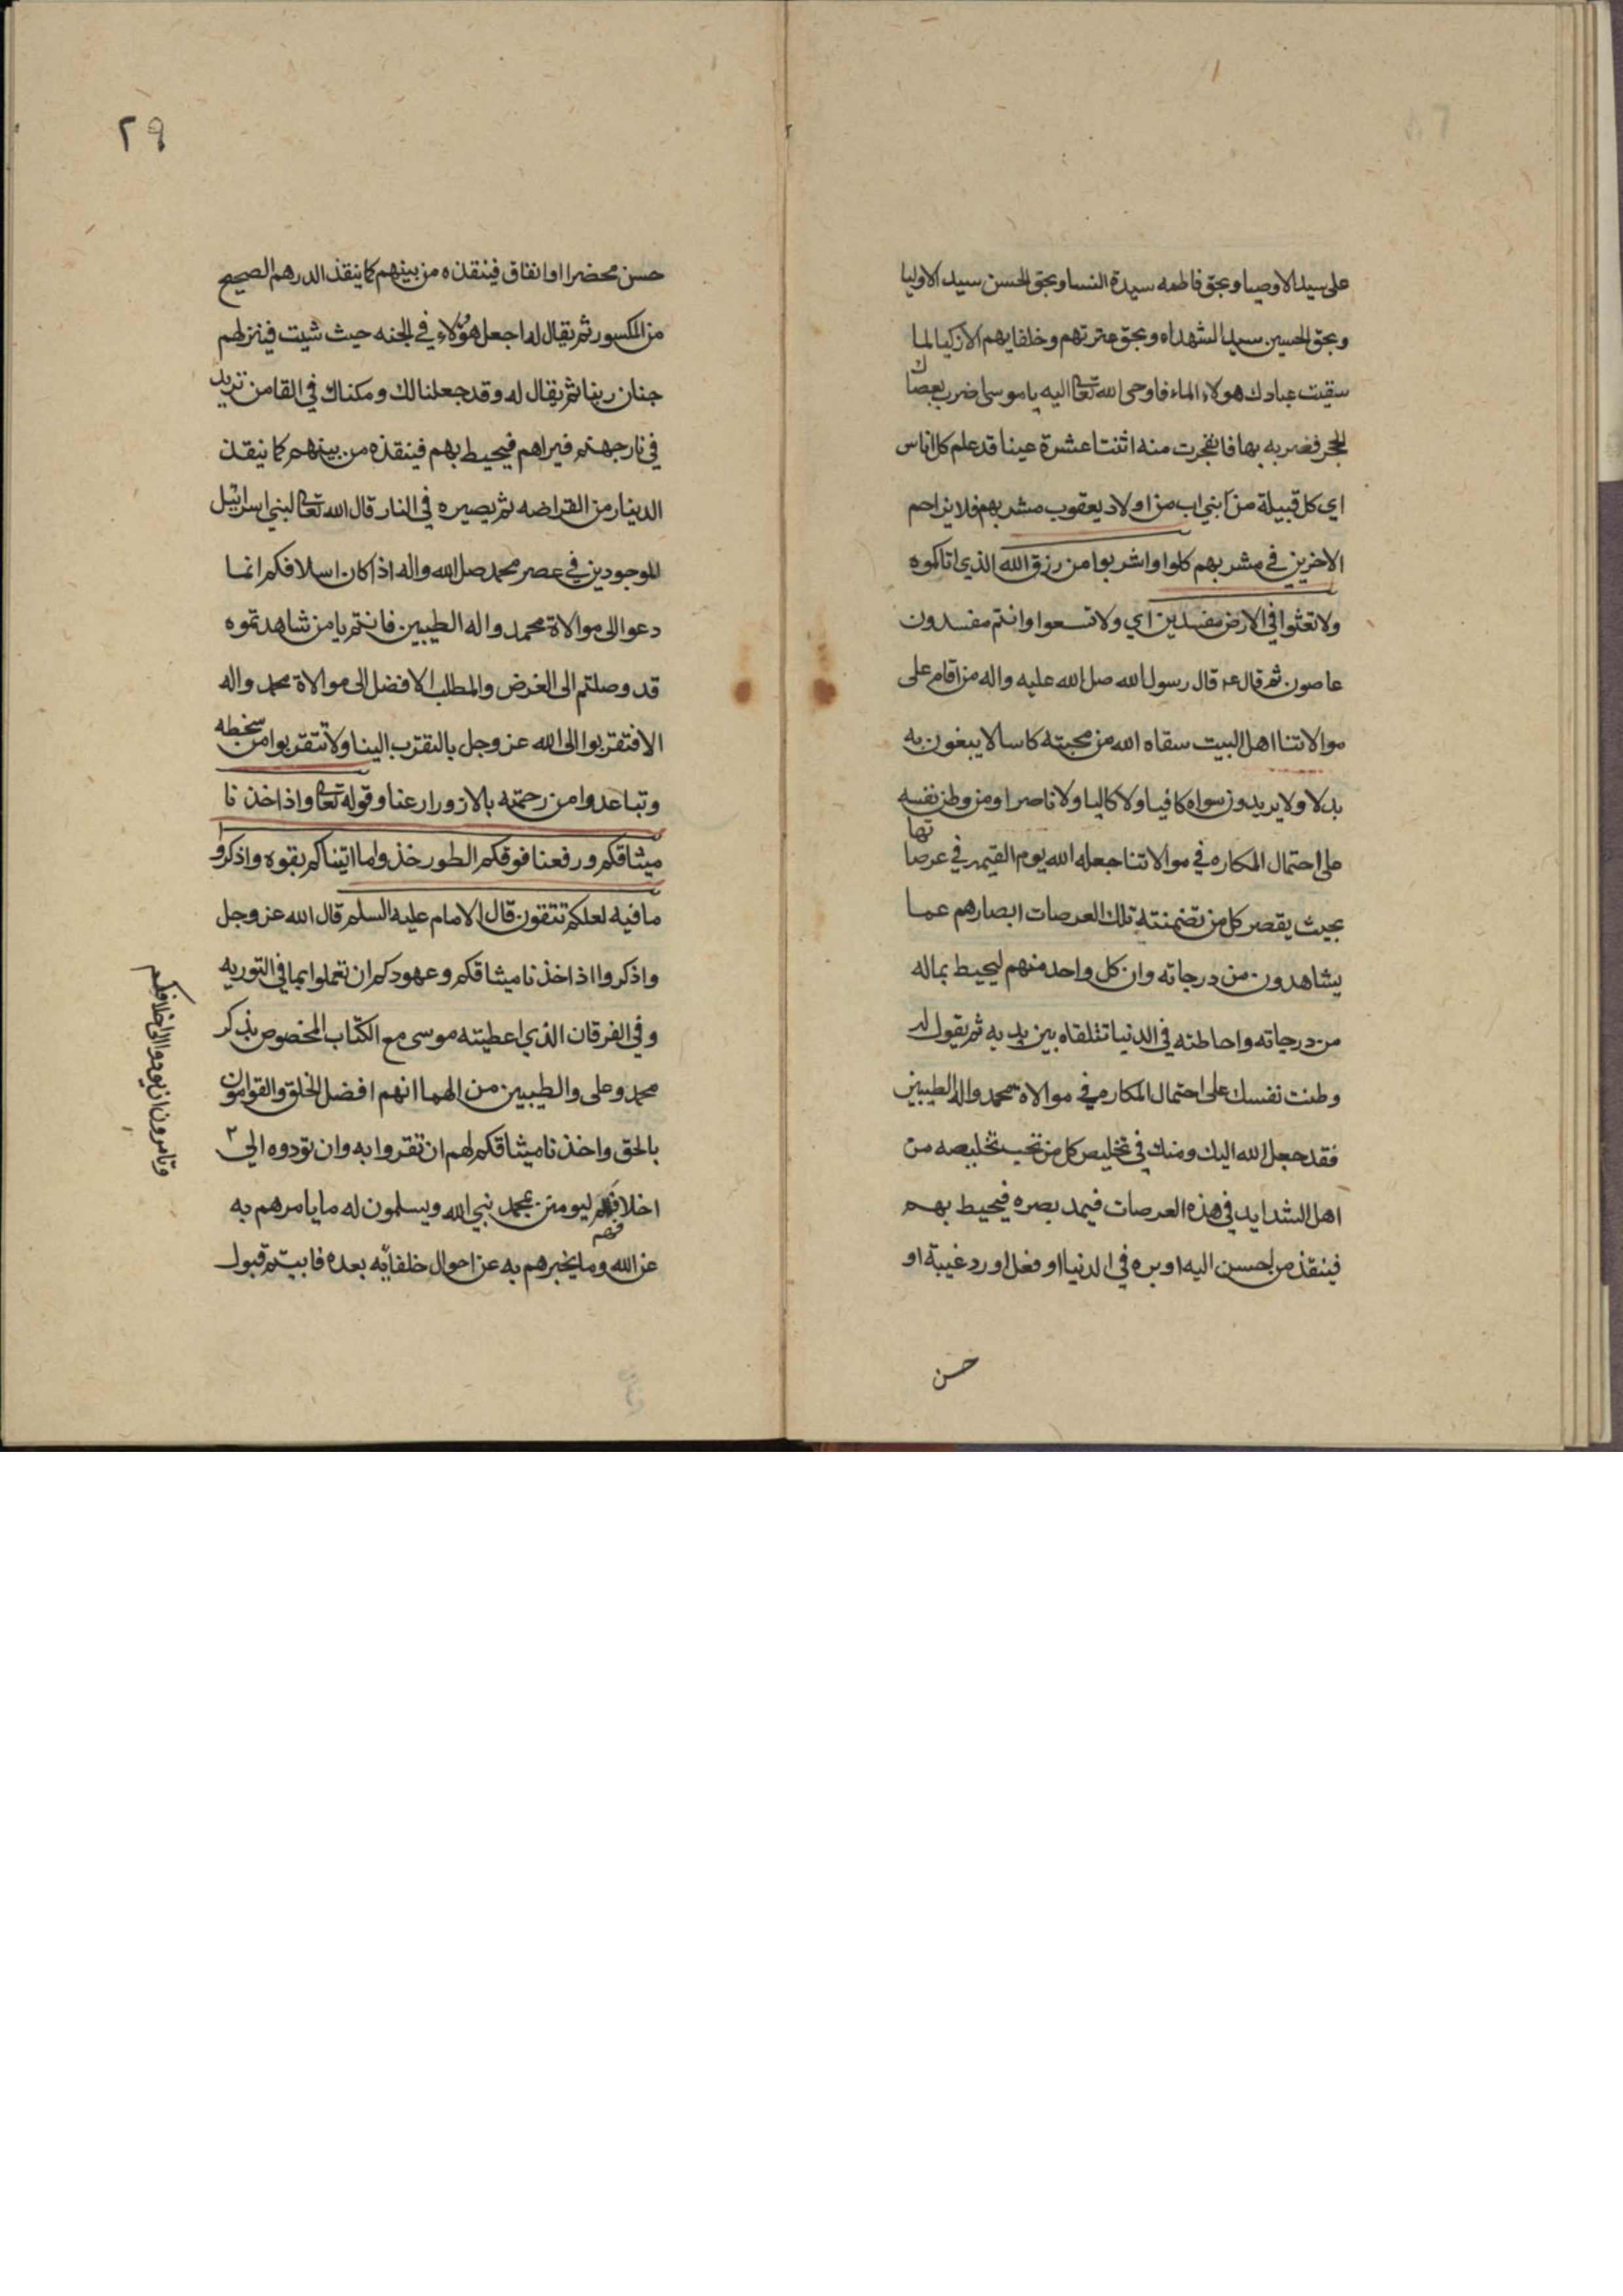 على سيد الاوصيا وبحق فاطمه سيدة النسا وبحق الحسن سيد الاوليا
وبحق الحسين سيد الشهداء وبحق عترتهم وخلفايهم الازكيا لما
سقيت عبادك هولاء الماء فاوحى الله تعالى اليه يا موسى اضرب بعصاك
الحجر فضربه بها فانفجرت منه اثنتا عشرة عينا قد علم كل اناس
اي كل قبيلة من بني اب من اولاد يعقوب مشربهم فلا يزاحم
الاخرين في مشربهم كلوا واشربوا من رزق الله الذي اتاكموه
ولا تعثوا في الارض مفسدين اي ولا تسعوا وانتم مفسدون
عاصون ثم قال ع قال رسول الله صل الله عليه واله من اقام على
موالاتنا اهل البيت سقاه الله من محبته كاسا لا يبغون به
بدلا ولا يريدون سواه كافيا ولا كاليا ولا ناصرا ومن وطن نفسه
على احتمال المكاره في موالاتنا جعله الله يوم القيمه في عرصاتها
بحيث يقصر كل من تضمنته تلك العرصات ابصارهم عما
يشاهدون من درجاته وان كل واحد منهم ليحيط بماله
من درجاته واحاطته في الدنيا تتلقاه بين يديه ثم يقول له
وطنت نفسك على احتمال المكاره في موالاة محمد واله الطيبين
فقد جعل الله اليك ومنك في تخليص كل من تحب تخليصه من
اهل الشدايد في هذه العرصات فيمد بصره فيحيط بهم
فينقذ من احسن اليه او بره في الدنيا او فعل او رد غيبة او
حسن
٢٩
حسن محضرا او انفاق فينقذه من بينهم كما ينقذ الدرهم الصحيح
من المكسور ثم يقال له اجعل هؤلاء في الجنه حيث شيت فينزلهم
جنان ربنا ثم يقال له وقد جعلنا لك ومكناك في القا من تريد
في نار جهنم فيراهم فيحيط بهم فينقذه من بينهم كما ينقذ
الدينار من القراضه ثم يصيره في النار قال الله تعالى لبني اسرائيل
الموجودين في عصر محمد صل الله واله اذا كان اسلافكم انما
دعوا الى موالاة محمد واله الطيبين فانتم يا من شاهدتموه
قد وصلتم الى الغرض والمطلب الافضل الى موالاة محمد واله
الا فتقربوا الى الله عز وجل بالتقرب الينا ولا تتقربوا من سخطه
وتباعدوا من رحمته بالازورار عنا وقوله تعالى واذ اخذنا
ميثاقكم ورفعنا فوقكم الطور خذوا ما اتيناكم بقوه واذكروا
ما فيه لعلكم تتقون قال الامام عليه السلم قال الله عز وجل
واذكروا اذ اخذنا ميثاقكم وعهودكم ان تعملوا بما في التوريه
وفي الفرقان الذي اعطيته موسى مع الكتاب المخصوص بذكر
محمد وعلى والطيبين من الهما انهم افضل الخلق والقوامون
بالحق واخذنا ميثاقكم لهم ان تقروا به وان تودوه الى
اخلافكم ليومنن بمحمد نبي الله ويسلمون له ما يامرهم به
عن الله وما يخبرهم به عن احوال خلفائه بعده فابيتم قبول
وتامرون ان يودوه الى اخلافكم